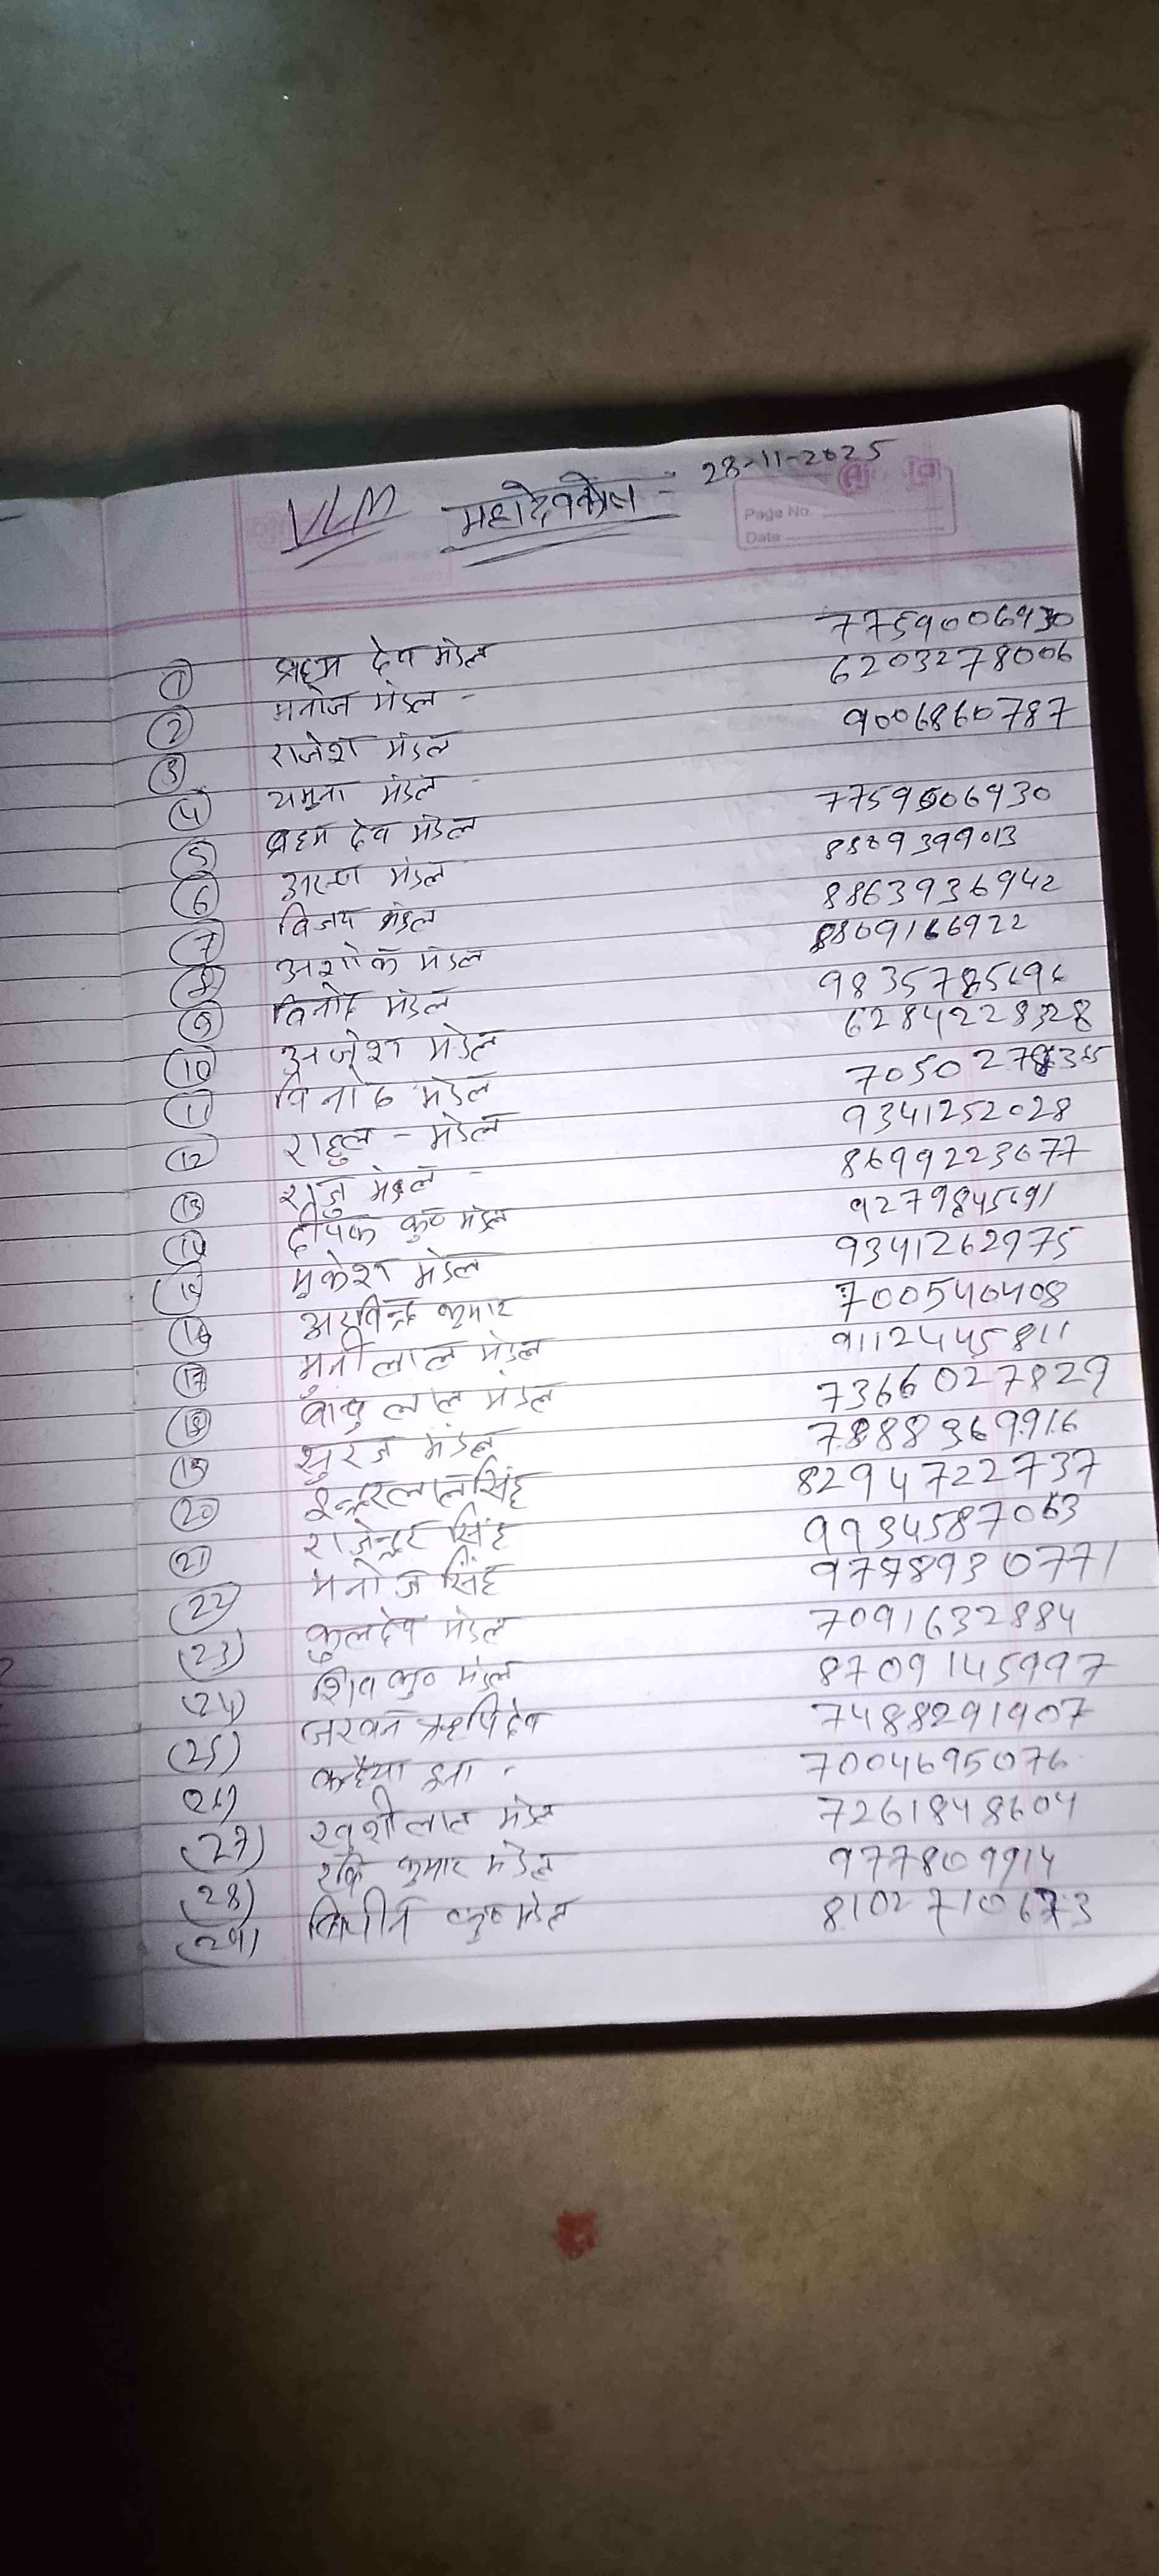 VLM महादेवकोल - 28-11-2025
Page No.
Date
1 ब्रह्म देव मंडल 7759006930
2 मनोज मंडल - 6203278006
3 राजेश मंडल 9006860787
4 यमुना मंडल -
5 ब्रहम देव मंडल 7759006930
6 अरुण मंडल 8809399013
7 विजय मंडल 8863936942
8 अशोक मंडल 8809166922
9 विनोद मंडल 9835785696
10 ब्रजेश मंडल 6284228328
11 विनोद मंडल
12 राहुल - मंडल 9341252028
13 राजु मंडल - 8699223677
14 दीपक कु० मंडल 9279845691
15 मुकेश मंडल 9341262975
16 अरविन्द्र कुमार 700540408
17 मुनीलाल मंडल 9112445811
18 बाबुलाल मंडल 7366027829
19 सुरज मंडल 7888369916
20 इन्द्रलाल सिंह 8294722737
21 राजेन्द्र सिंह 9934587063
22 मनोज सिंह
(23) कुलदेव मंडल 7091632884
(24) शिव कु० मंडल 8709145997
(25) ऋषिदेव 7488291907
(26) कन्हैया 7004695076
(27) खुशीलाल मंडल 7261848604
(28) रवि कुमार मंडल 977809914
(29) विपीन कु० मंडल